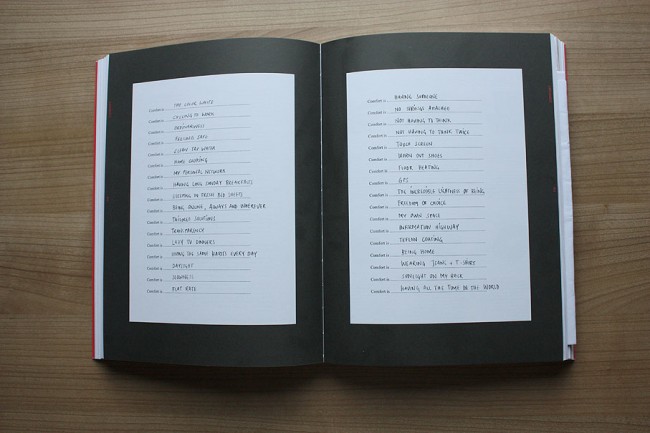 Comfort is THE COLOR WHITE
Comfort is CALLING TO MAMA
Comfort is
Comfort is FEELING SAFE
Comfort is CLEAN TAP WATER
Comfort is HOME COOKING
Comfort is MY PERSONAL NETWORK
Comfort is HAVING LONG SUNDAY BREAKFASTS
Comfort is IN FRESH BED SHEETS
Comfort is BEING ONLINE, ALWAYS AND WHEREVER
Comfort is SOLUTIONS
Comfort is TRANSPARENCY
Comfort is TO
Comfort is DOING THE SAME HABITS EVERY DAY
Comfort is DAYLIGHT
Comfort is SLOWNESS
Comfort is FLAT RATE
Comfort is HAVING SOMEONE
Comfort is NO SERVICE AVAILABLE
Comfort is NOT HAVING TO THINK
Comfort is NOT HAVING TO THINK TWICE
Comfort is TOUCH SCREEN
Comfort is WORN OUT SHOES
Comfort is FLOOR HEATING
Comfort is GPS
Comfort is THE INCREDIBLE LIGHTNESS OF BEING
Comfort is FREEDOM OF CHOICE
Comfort is MY OWN SPACE
Comfort is INFORMATION HIGHWAY
Comfort is TEFLON COATING
Comfort is BEING HOME
Comfort is WEARING JEANS + T-SHIRT
Comfort is SUNLIGHT ON MY BACK
Comfort is HAVING ALL THE TIME IN THE WORLD